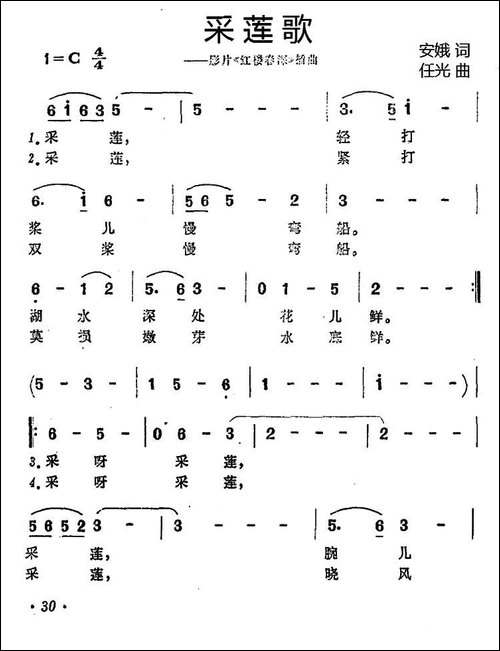 采莲歌
——影片《红楼春深》插曲
1=C 4/4
安娥 词
任光 曲
6 i 6 3 5 - | 5 - - - | 3. 5 i
1.采 莲, 轻 打
2.采 莲, 紧 打
6. i 6 - | 5 6 5 - 2 - | 3 - - -
桨 儿 慢 弯 船。
双 桨 慢 弯 船。
6 - 1 2 | 5. 6 3 - | 0 1 - 5 | 2 - - - :||
湖 水 深 处 花 儿 鲜。
莫 损 嫩 芽 水 底 鲜。
(5 - 3 - | 1 5 - 6 | 1 - - - | i - - - )|
||: 6 - 5 - | 0 6 - 3 | 2 - - - | 2 - - - |
3.采 呀 采 莲,
4.采 呀 采 莲,
5 6 5 2 3 - | 3 - - - | 5. 6 3
采 莲, 腕 儿
采 莲, 晓 风
· 30 ·